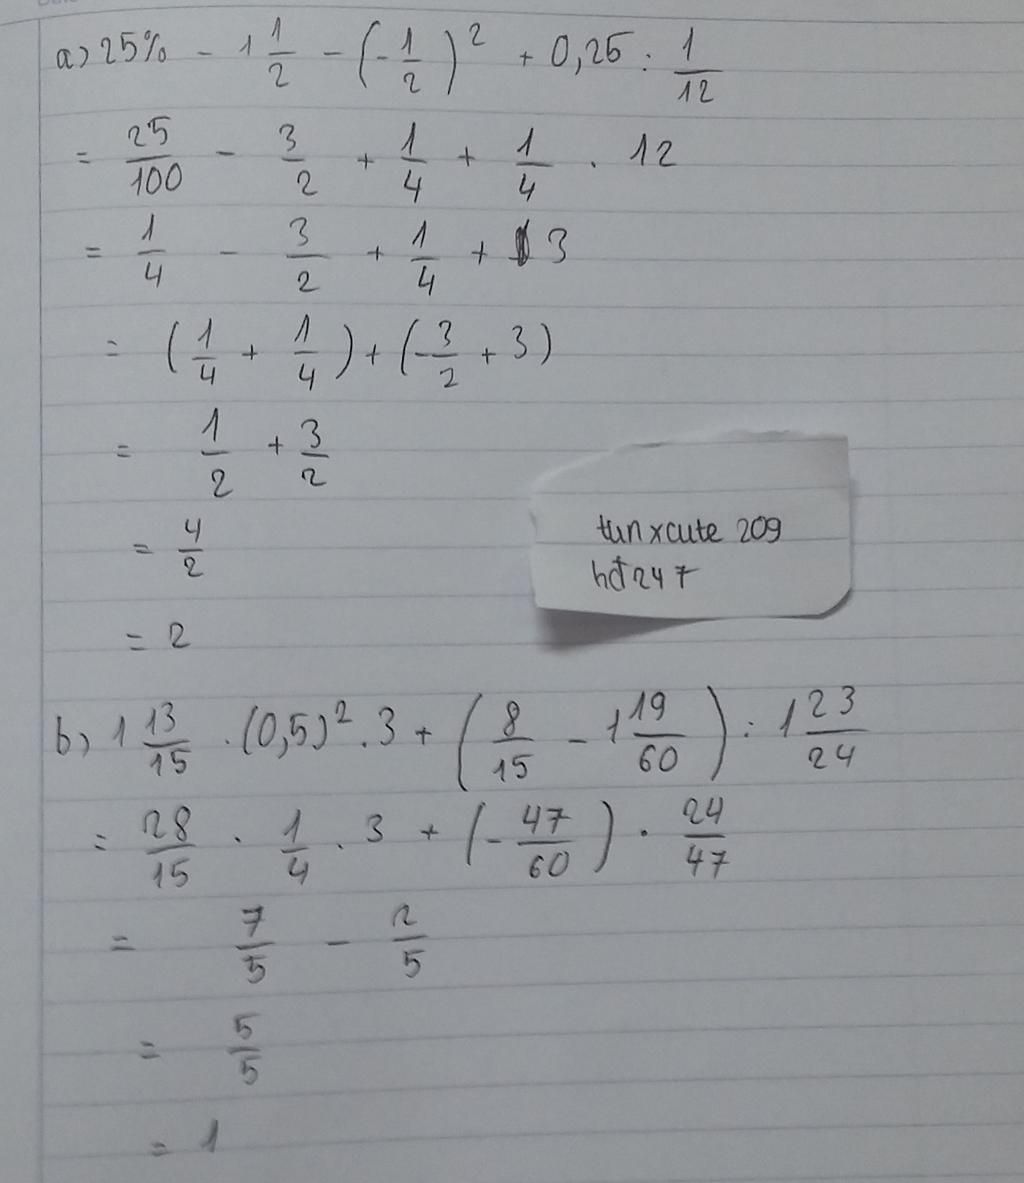 a) 25% - 1 1/2 - (-1/2)² + 0,25 : 1/12
= 25/100 - 3/2 + 1/4 + 1/4 . 12
= 1/4 - 3/2 + 1/4 + 3
= (1/4 + 1/4) + (-3/2 + 3)
= 1/2 + 3/2
= 4/2
= 2
tunxcute 209
hđ247
b) 1 13/15 . (0,5)² . 3 + (8/15 - 1 19/60) : 1 23/24
= 28/15 . 1/4 . 3 + (-47/60) . 24/47
= 7/5 - 2/5
= 5/5
= 1